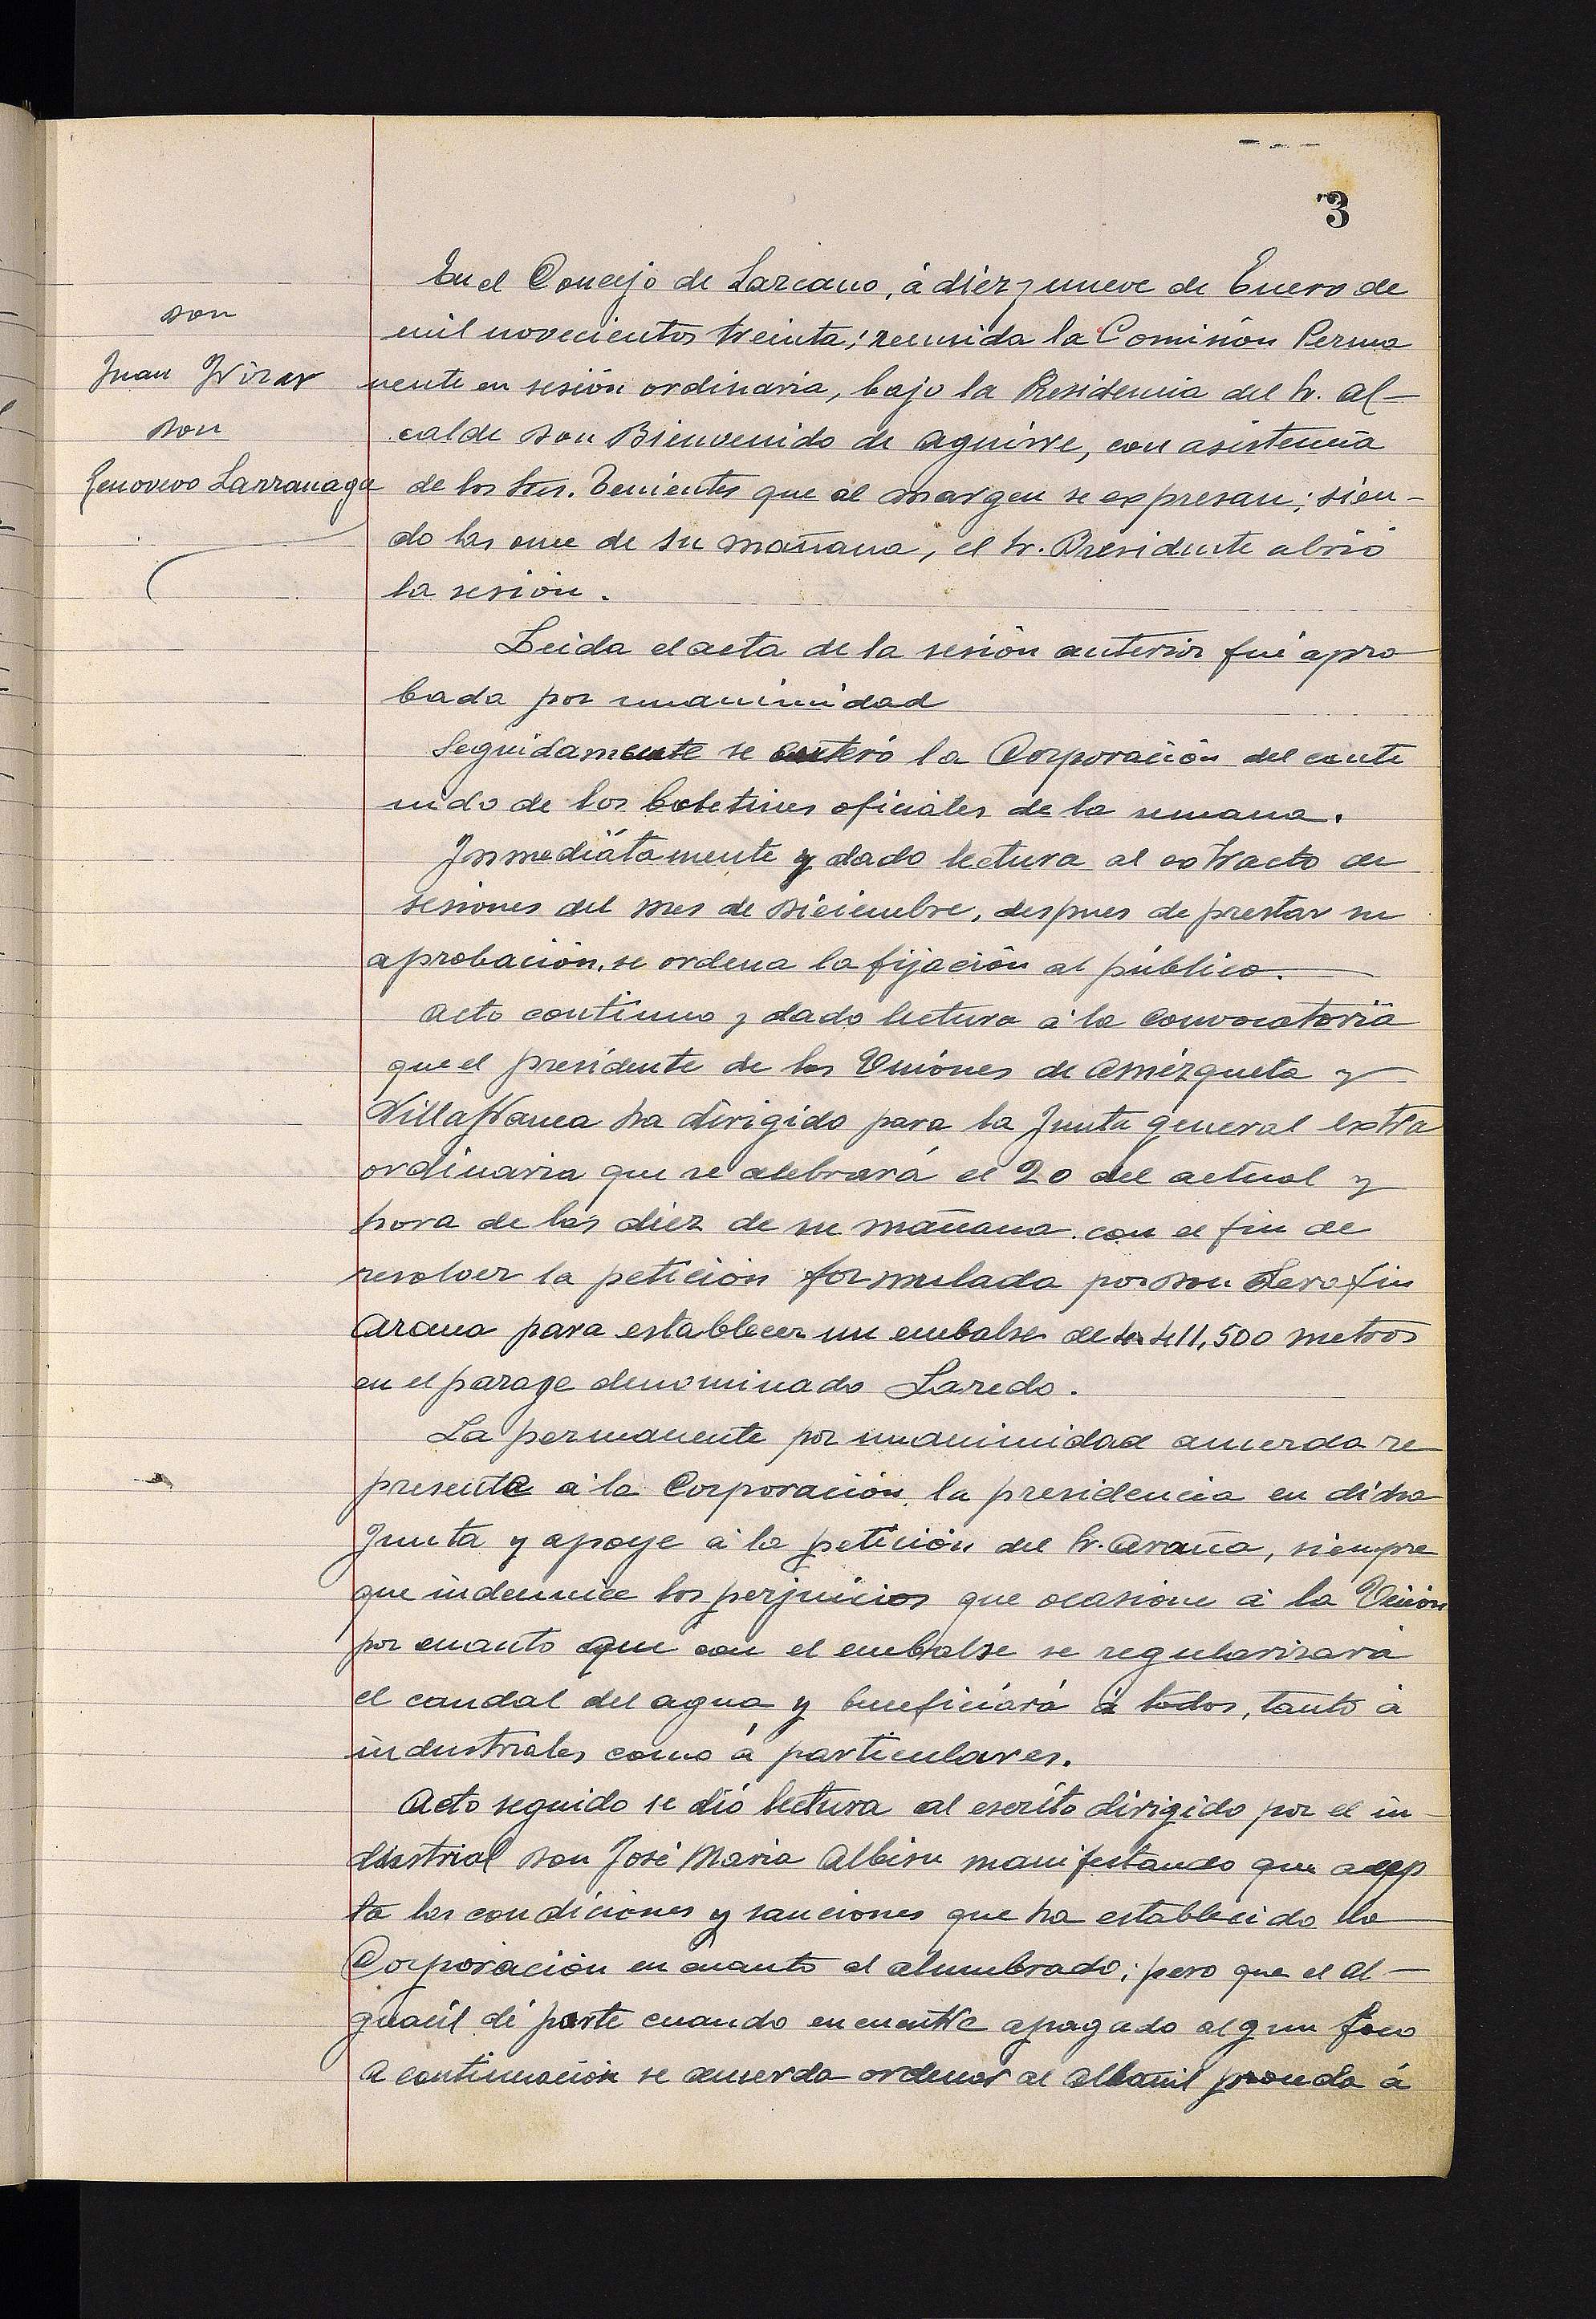 3
Don
Juan Irizar
Don
Genovevo Larranaga
En el Concejo de Lazcano, á diez y nueve de Enero de
mil novecientos treinta; reunida la Comisión Perma
nente en sesión ordinaria, bajo la Presidencia del Sr. Al-
calde Don Bienvenido de Aguirre, con asistencia
de los Sres. Tenientes que al margen se expresan; sien-
do las once de su mañana, el Sr. Presidente abrió
la sesión.
Leida el acta de la sesión anterior fué apro
bada por unanimidad
Seguidamente se enteró la Corporación del conte
nido de los boletines oficiales de la semana.
Inmediátamente y dado lectura al extracto de
sesiones del mes de Diciembre, despues de prestar su
aprobación, se ordena la fijación al público.
Acto continuo y dado lectura á la convocatoria
que el presidente de las Uniones de Amézqueta y
Villafranca ha dirigido para la Junta general extra
ordinaria que se celebrará el 20 del actual y
hora de las diez de su mañana con el fin de
resolver la petición formulada por Don Serafin
Arana para establecer un embalse de 411,500 metros
en el parage denominado Laredo.
La permanente por unanimidad acuerda re
presente á la Corporación, la presidencia en dicha
Junta y apoye á la petición del Sr. Araña, siempre
que indemnice los perjuicios que ocasione á la Unión
por cuanto que con el embalse se regularizará
el caudal del agua y beneficiará á todos, tanto á
industriales como á particulares.
Acto seguido se dió lectura al escrito dirigido por el in-
dustrial Don José Maria Albisu manifestando que acep
ta las condiciones y sanciones que ha establecido la
Corporación en cuanto al alumbrado; pero que el al-
guacil dé parte cuando encuentre apagado algun foco
A continuación se acuerda ordenar al albañil proceda á